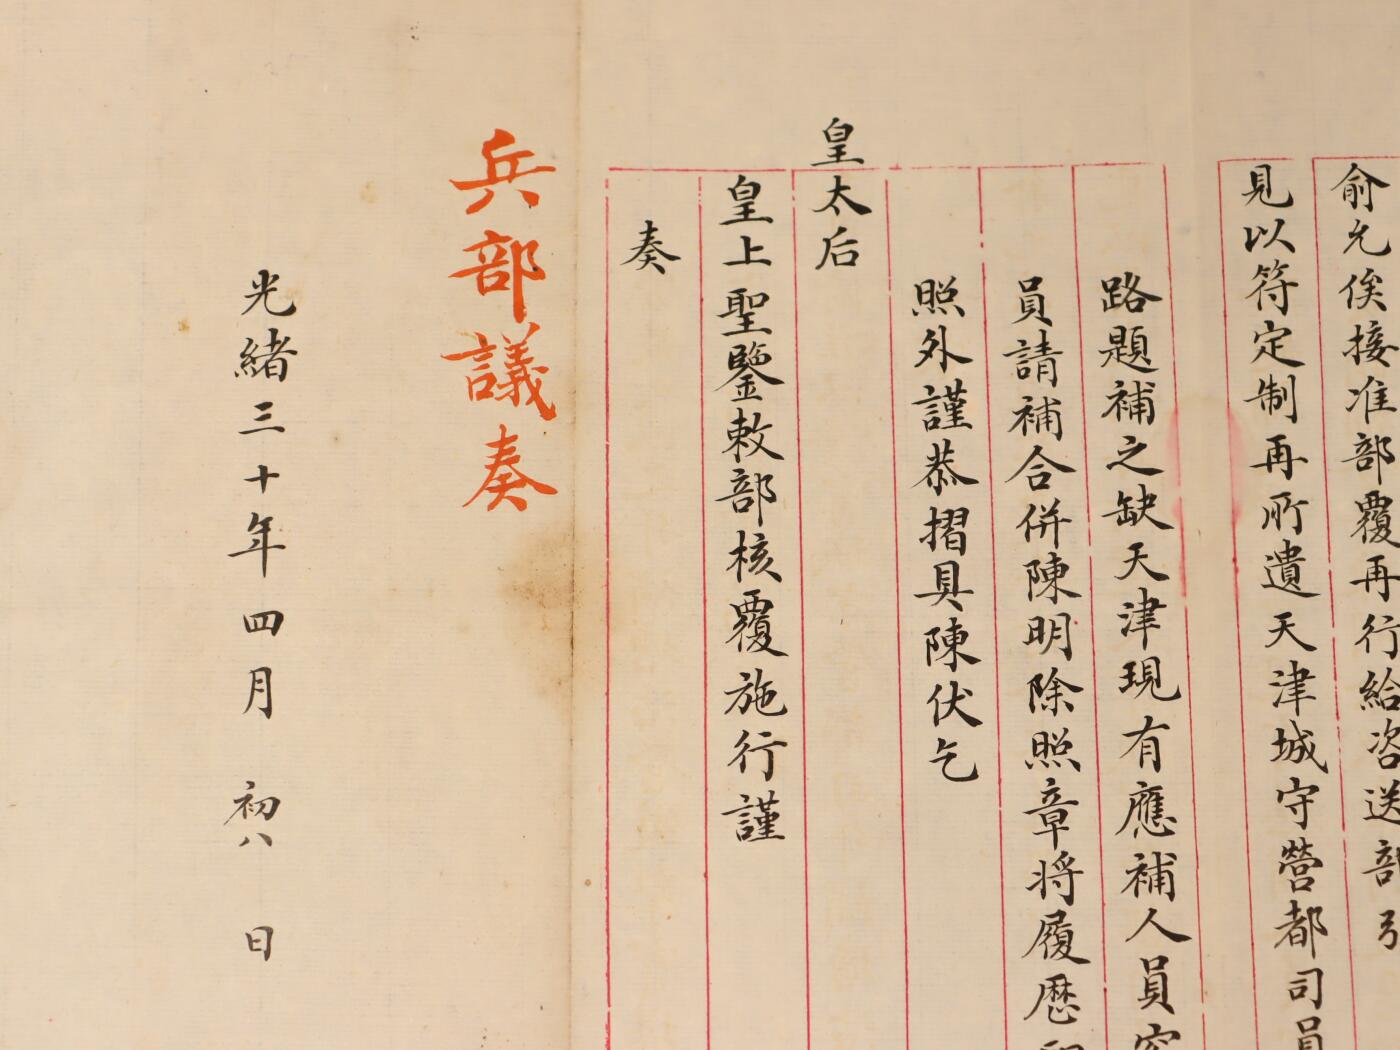 俞允俟接准部覆再行給咨送部引
見以符定制再所遺天津城守營都司員
路題補之缺天津現有應補人員容
員請補合併陳明除照章將履歷
照外謹恭摺具陳伏乞
皇太后
皇上聖鑒敕部核覆施行謹
奏
兵部議奏
光緒三十年四月初八日